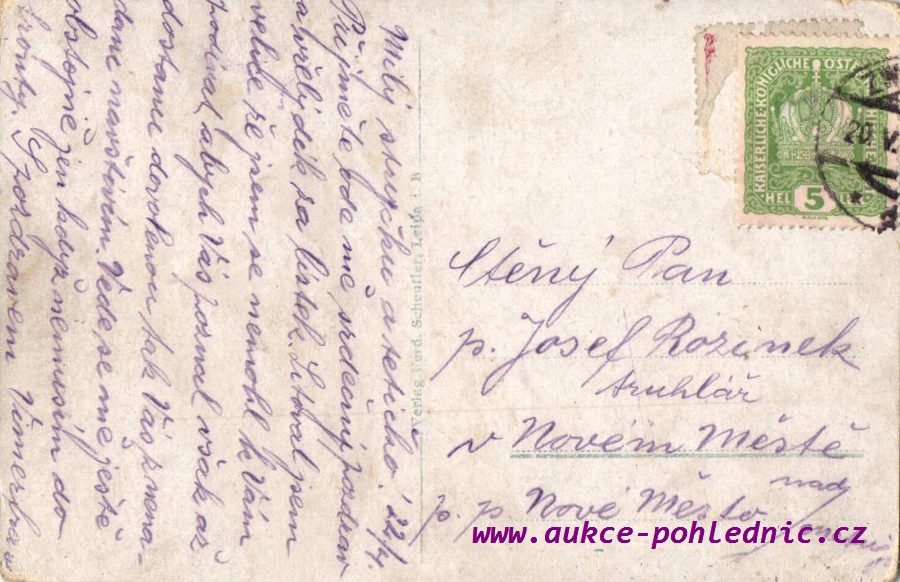 Milý strýčku a tetičko! 22/4.
Přijměte ode mě srdečný pozdrav
a vřelý dík za lístek. Litoval jsem
velice že jsem se nemohl k Vám
podívat abych Vás poznal však až
dostanu dovolenou tak Vás zena-
dání navštívím. Vede se mě ještě
obstojně jen když nemusím do
fronty. S pozdravem
Verlag Ferd. Scheufler, Leipa i. B
KAISERLICHE KÖNIGLICHE ÖSTERREICHISCHE
HEL 5 LER
20
Ctěný Pan
p. Josef Rozinek
truhlář
v Novém Městě
nad
p. p. Nové Město
www.aukce-pohlednic.cz